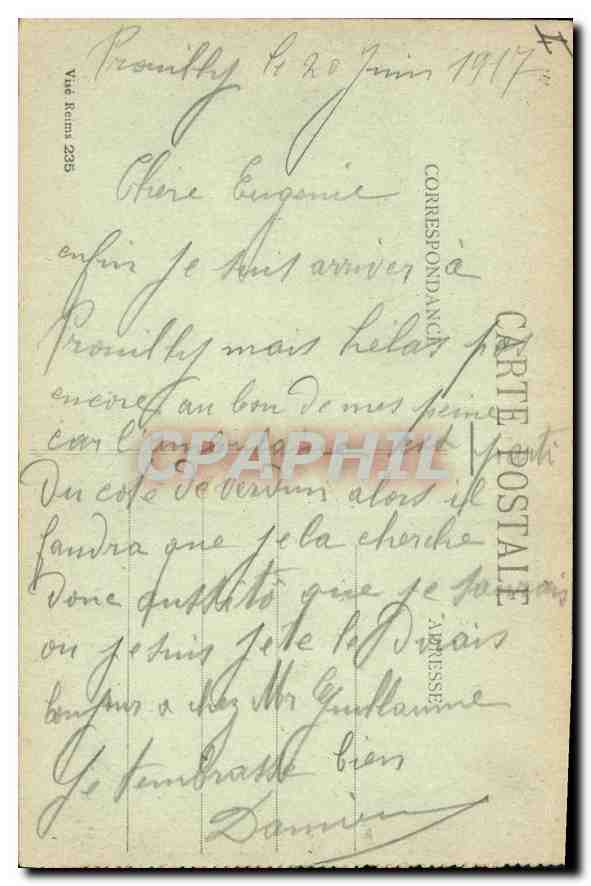 Prouilly le 20 Juin 1917
Chère Eugenie
enfin je suis arriver à
Prouilly mais hélas pas
encore au bon de mes peine
car l' est parti
du cote de verdun alors il
faudra que je la cherche
donc aussitô que je saurais
ou je suis je te le Dirais
bonjour a chez Mr Guillaume
Je t'embrasse bien
Damien
Visé Reims 235
CORRESPONDANCE
CARTE POSTALE
ADRESSE
CPAPHIL